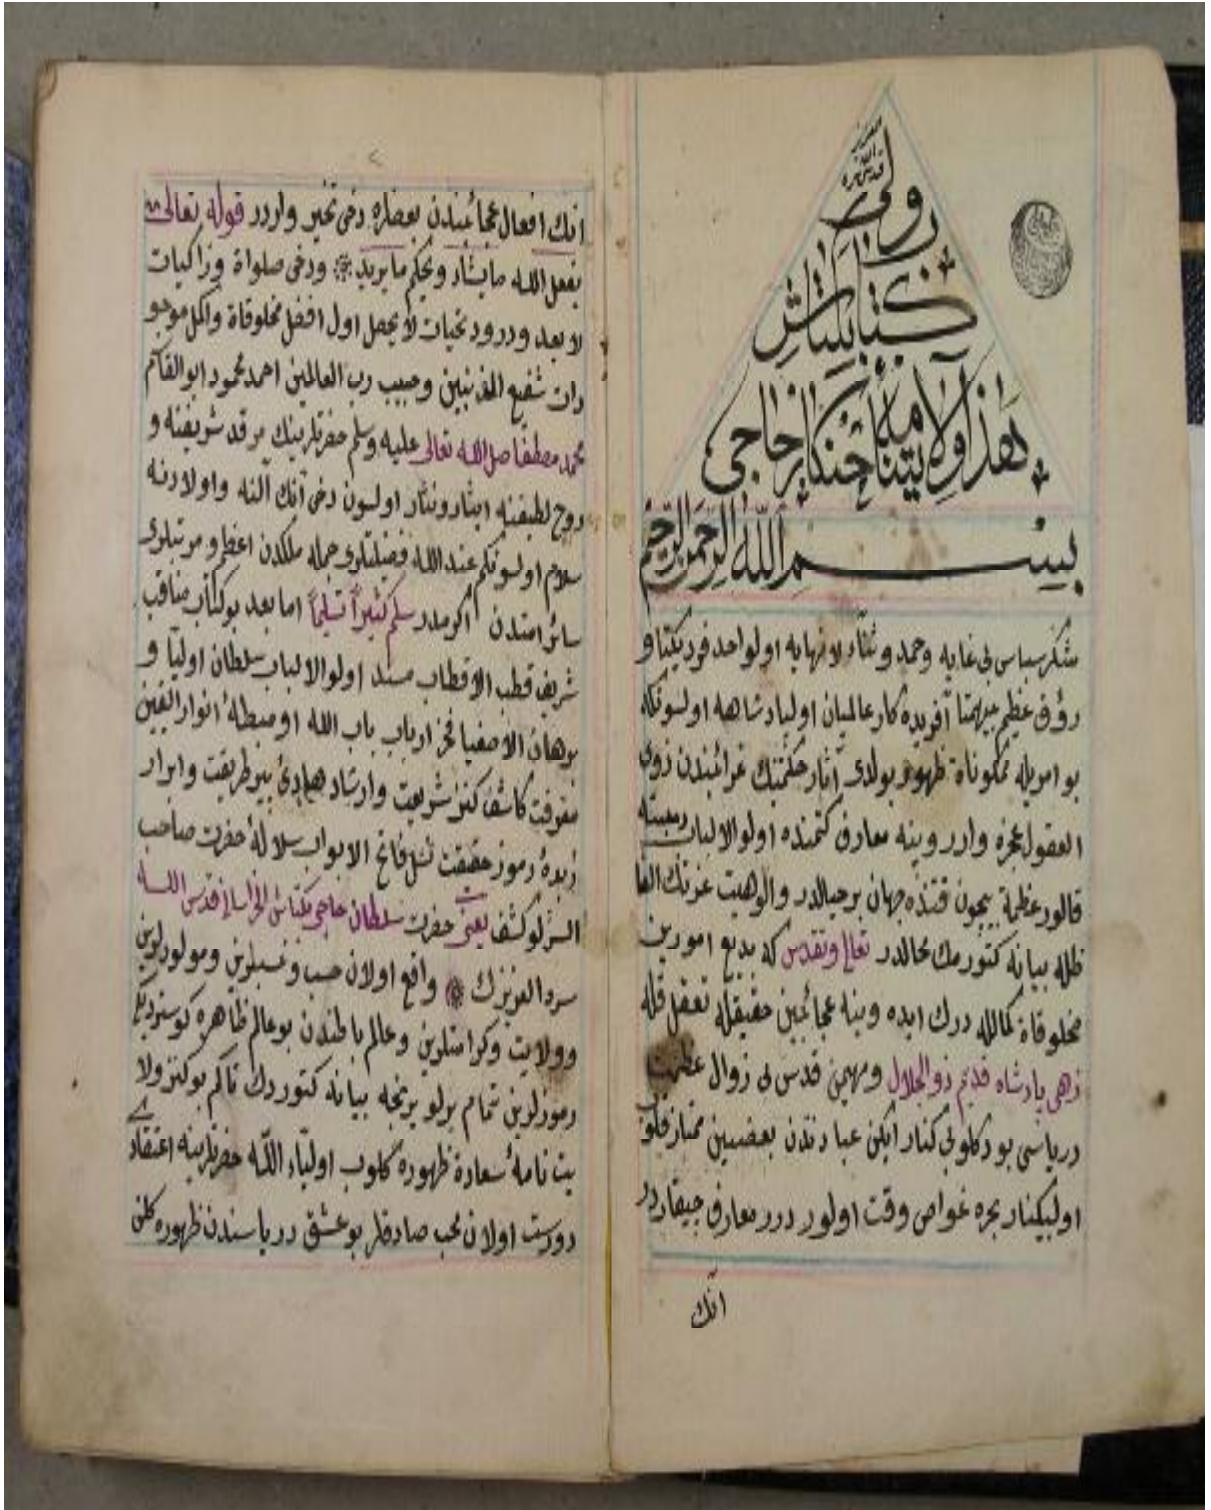 قدس الله سره
و ولی
کتاب بکتاش
هذا ولایتنامه خنکار حاجی
بسم الله الرحمن الرحیم
شکر سپاس بی غایه وحمد وثناء لا نهایه اولواحد فرد یکتا و
رؤف عظیم بیهمتا آفریده کار عالمیان اولپادشاهه اولسونکه
بو امریله مکوناة ظهوره بولدی آثار حکمتنک غرائبندن ذوی
العقول عجزه وارر وینه معارف کتمنده اولوالالباب
قالور عظمة بیچون قتنده جهان برحبه‌در والوهیت عزتنك
ظله بیانه کتورمك محالدر تعالی وتقدس که بدیع امورین
مخلوقاة کمالله درك ایده وینه عجائبین حقیقله تعقل قله
زهی پادشاه قدیم ذوالجلال ومهیمن قدس بی زوال عظمت
دریاسی بودکلو بی کنار ایکن عبادندن بعضیین ممتاز قلو
اولبیکنار بحره غواص وقت اولور درر معارف چیقاردر
انك
٢
انك افعال عجائبندن بعضاره دخی تحیر واردر قوله تعالی
یفعل الله مایشاء ویحکم مایرید ودخی صلواة وزاکیات
لا یعد ودرود تحیات لا یحصل اول افضل مخلوقاة واکمل موجو
دات شفیع المذنبین وحبیب رب العالمین احمد محمود ابوالقاسم
محمد مصطفا صل الله تعالی علیه وسلم حضرتلرینك مرقد شریفنه و
روح لطیفنه ایثار ونثار اولسون دخی آنك آلنه واولادنه
سلام اولسونکم عند الله فضیلتلری جمله ملکدن اعظم ومرتبلری
سائر امتدن اکرمدر سلم کثیراً تسلیماً اما بعد بوکتاب مناقب
شریف قطب الاقطاب مسند اولوالالباب سلطان اولیا و
برهان الاصفیا فخر ارباب باب الله اومبطلهٔ انوار الیقین
معرفت کاشف کنز شریعت وارشاد هادئ پیر طریقت وابرار
زبدهٔ رموز حقیقت نسل فاتح الابواب سلالهٔ حضرت صاحب
السر لو کشف یعنی حضرت سلطان حاجی بکتاش الخراسانی قدس الله
سره العزیزك واقع اولان حسب ونسبلرین ومولودلرین
وولایت وکرامتلرین وعالم باطندن بوعالم ظاهره کوستردیکی
رموزلرین تمام یرلو یرنجه بیانه کتوردك تاکم بوکنز ولا
یت نامهٔ سعادة ظهوره کلوب اولیاء الله حضرتلرینه اعتقادی
دورست اولان محب صادقلر بوعشق دریاسندن ظهوره کلن